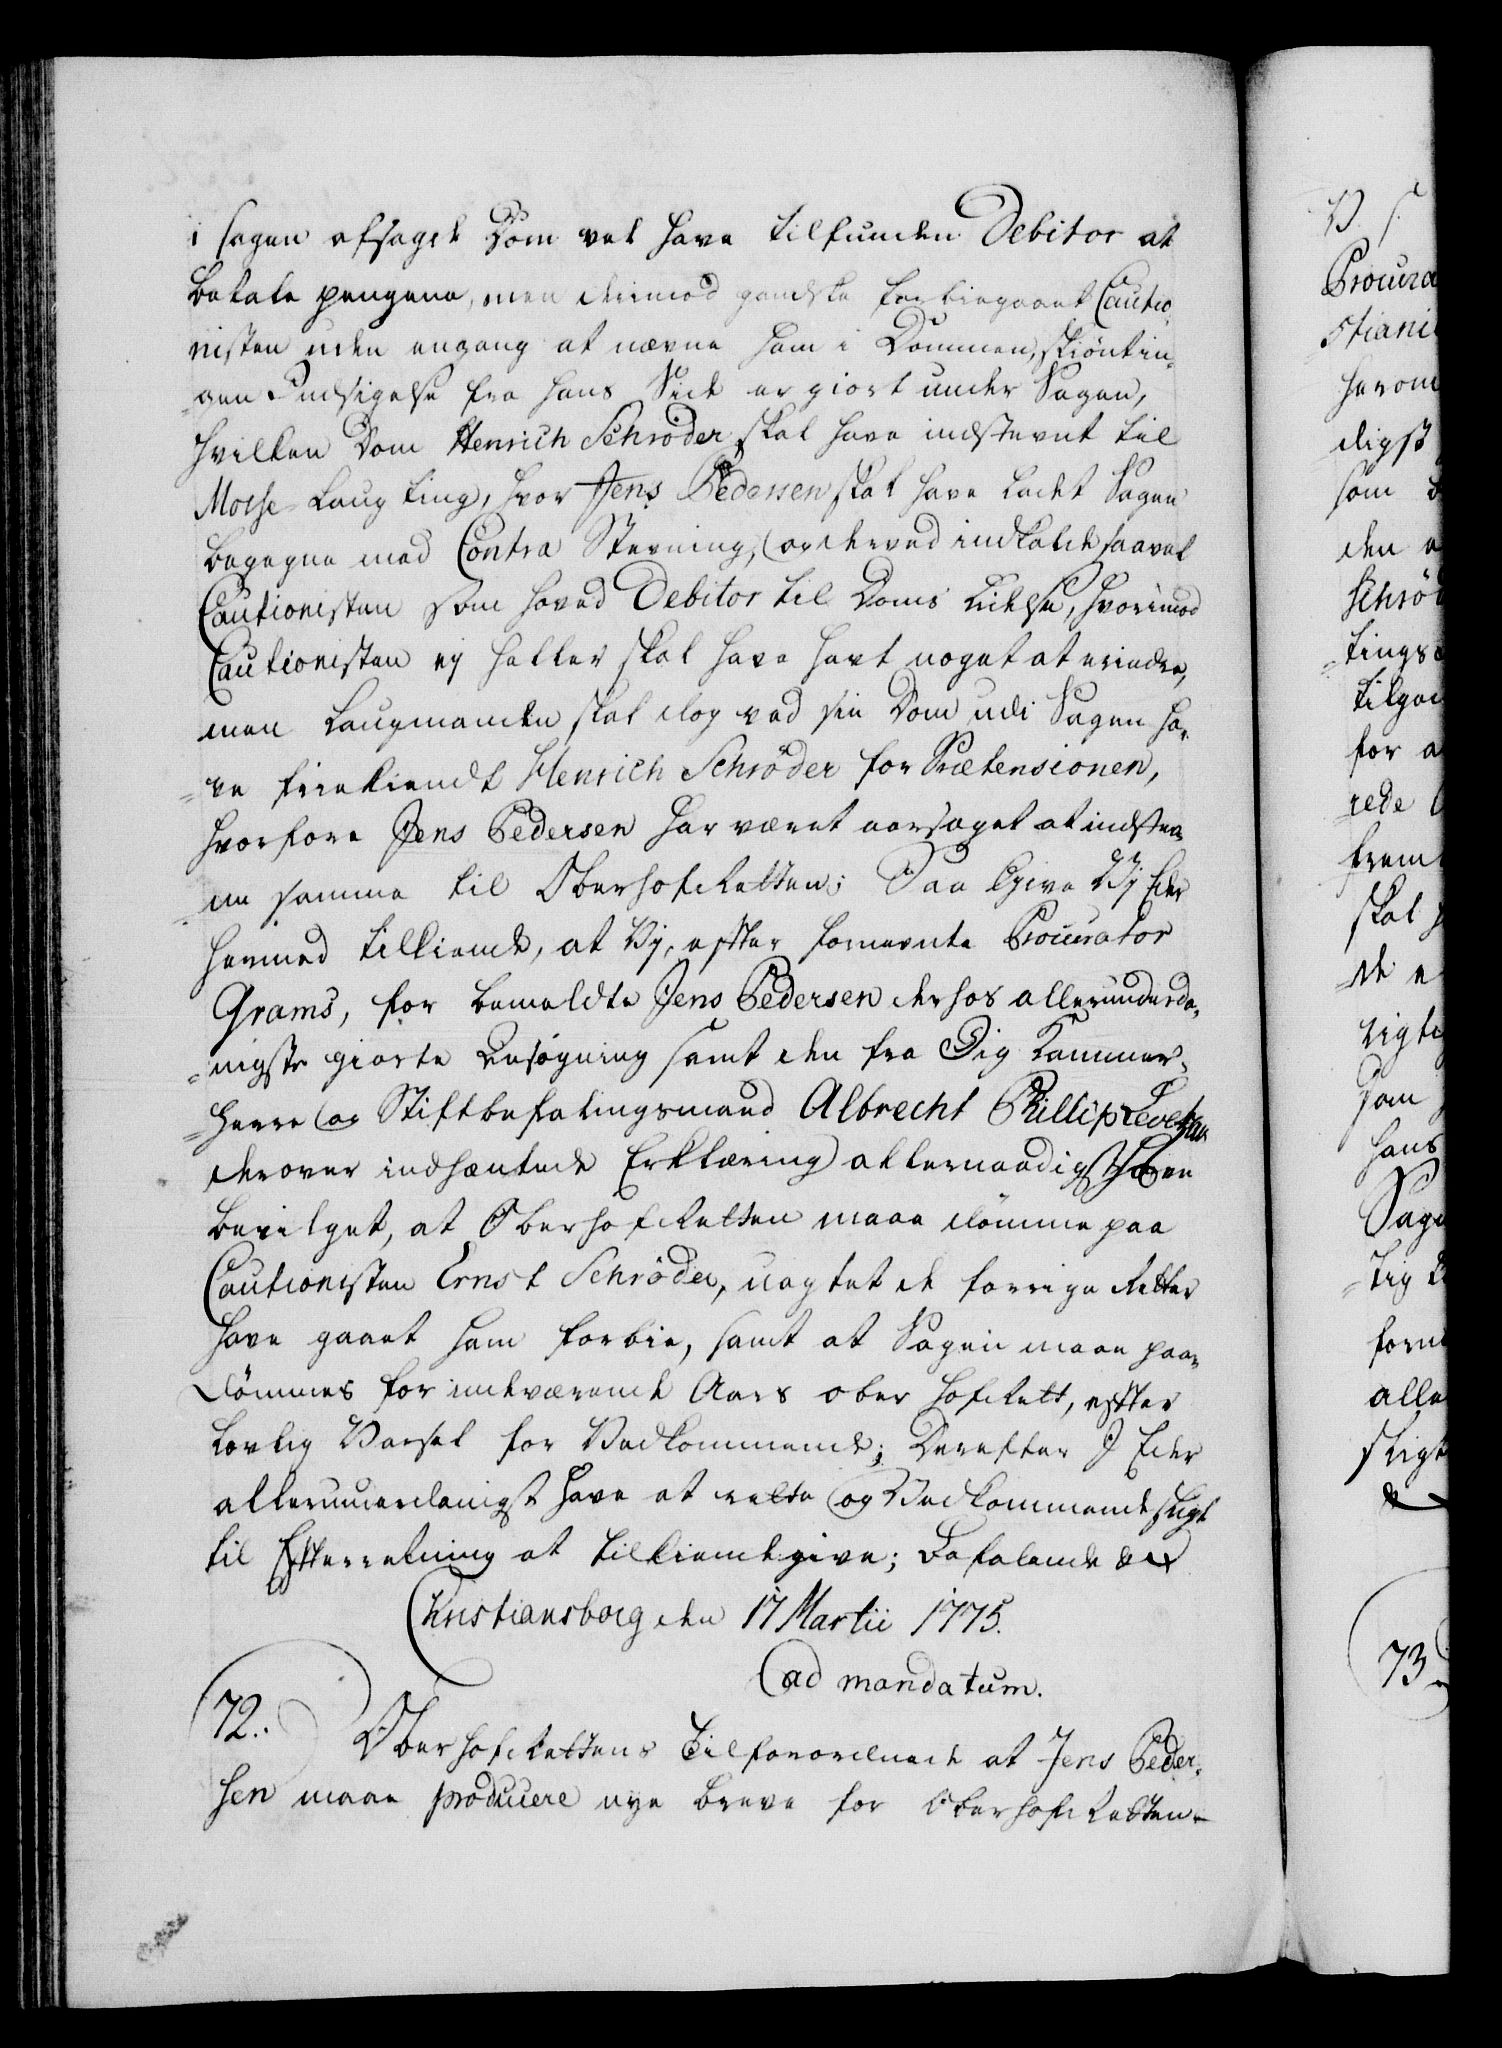 i Sagen afsagde Dom vel have tilfunden Debitor at
betale pengene, men derimod gandske forbiegaaet Cautio-
nisten uden engang at nævne ham i Dommen, skiönt in-
gen Indsigelse fra hans Side er giort under Sagen,
hvilken Dom Henrich Schröder skal have indstevnt til
Mosse Laugting, hvor Jens Pedersen skal have ladet Sagen
begegne med Contra Stevning, og derved indkalde saavel
Cautionisten som hoved Debitor til Doms Lidelse, hvorimod
Cautionisten ej heller skal have havt noget at erindre,
men Laugmanden skal dog ved sin Dom udi Sagen ha-
ve friekiendt Henrich Schröder for Prætensionen,
hvorfore Jens Pedersen har været aarsaget at indstev-
ne samme til Oberhofretten; Saa Give Vi Eder
hermed tilkiende, at Vi, efter fornevnte Procurator
Grams, for bemeldte Jens Pedersen derhos allerunderda-
nigst giorte Ansögning samt den fra Dig Kammer-
herre og Stiftbefalingsmand Albrecht Phillip Levetzau
derover indhæntede Erklæring allernaadigst have
bevilget, at Oberhofretten maae dömme paa
Cautionisten Ernst Schröder, uagtet de forrige Retter
have gaaet ham forbie, samt at Sagen maae paa-
dömmes for indeværende Aars ober hofRett, efter
lovlig Varsel for Vedkommende; Derefter I Eder
allerunderdanigst have at rette og Vedkommende sligt
til Efterretning at tilkiendegive; Befalende &c
Christiansborg den 17 Martii 1775.
ad mandatum.
72.
OberhofRettens Tilforordnede at Jens Peder-
sen maae producere nye breve for OberhofRetten.
V. S.
Procura
stiani
herom
digst
som
den
Schrö
tings
tilgod
for a
rede
frem
skal
de e
rigti
Dom
hans
Sage
tig
forn
alle
sligt
&
73